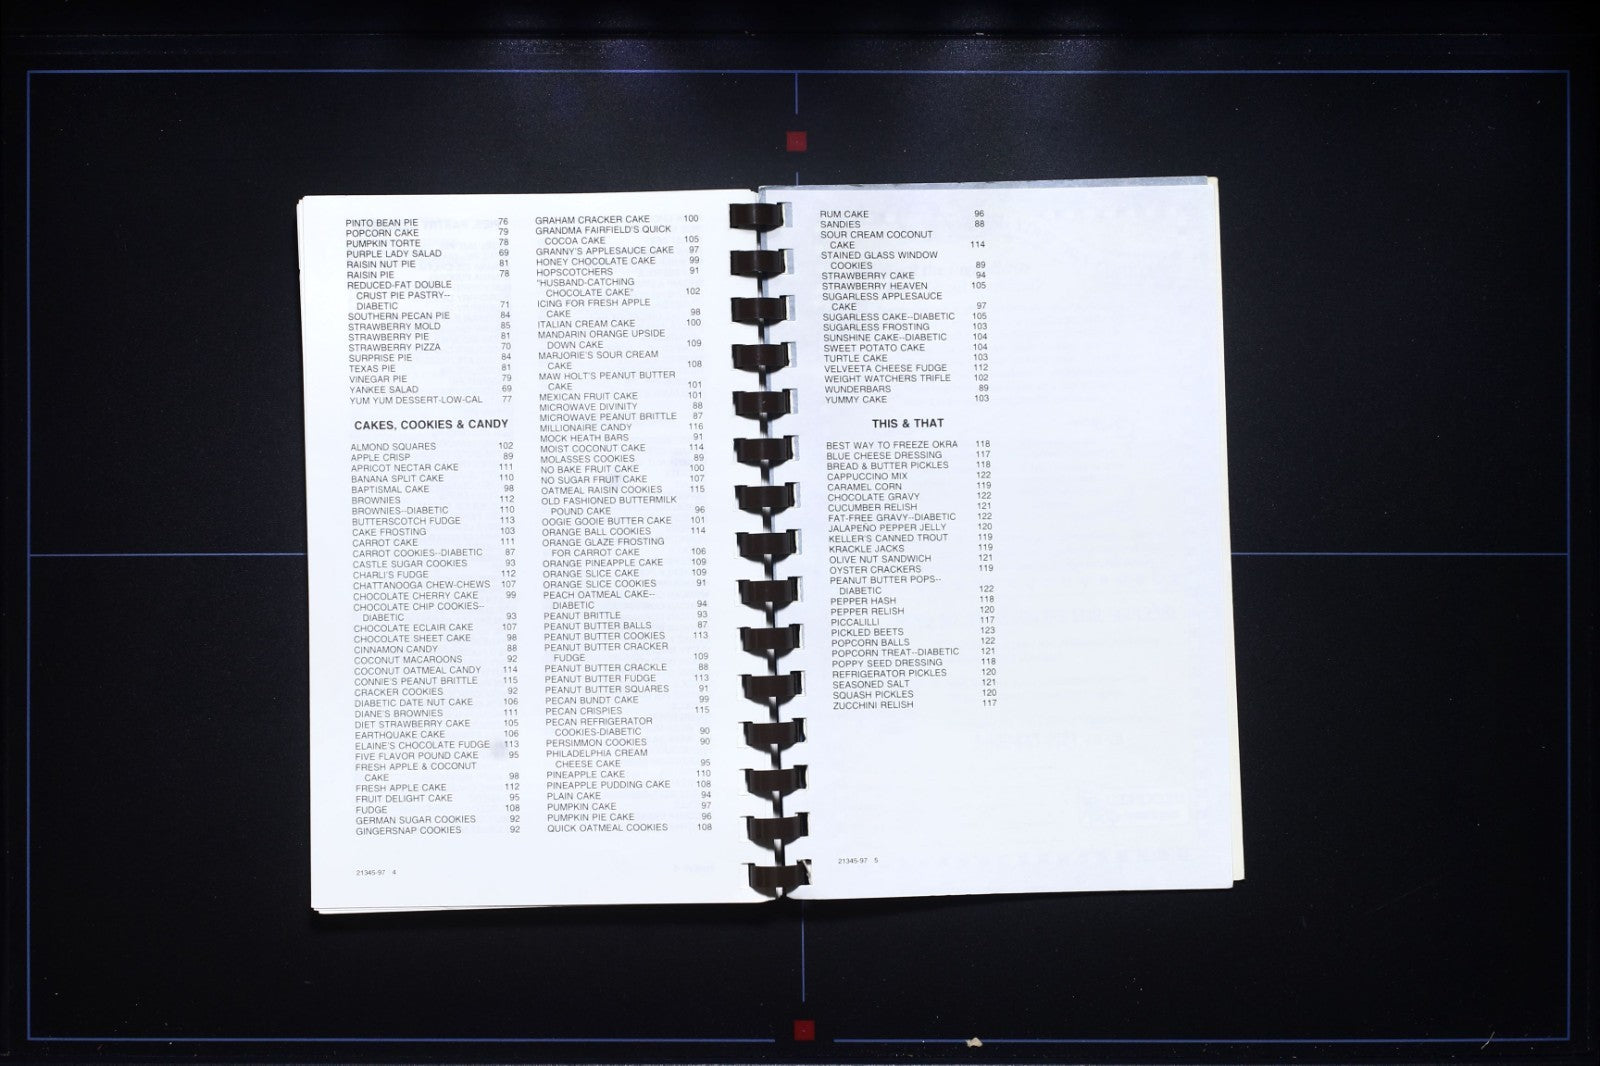 PINTO BEAN PIE 76
POPCORN CAKE 79
PUMPKIN TORTE 78
PURPLE LADY SALAD 69
RAISIN NUT PIE 81
RAISIN PIE 78
REDUCED-FAT DOUBLE
CRUST PIE PASTRY--
DIABETIC 71
SOUTHERN PECAN PIE 84
STRAWBERRY MOLD 85
STRAWBERRY PIE 81
STRAWBERRY PIZZA 70
SURPRISE PIE 84
TEXAS PIE 81
VINEGAR PIE 79
YANKEE SALAD 69
YUM YUM DESSERT-LOW-CAL 77
CAKES, COOKIES & CANDY
ALMOND SQUARES 102
APPLE CRISP 89
APRICOT NECTAR CAKE 111
BANANA SPLIT CAKE 110
BAPTISMAL CAKE 98
BROWNIES 112
BROWNIES--DIABETIC 110
BUTTERSCOTCH FUDGE 113
CAKE FROSTING 103
CARROT CAKE 111
CARROT COOKIES--DIABETIC 87
CASTLE SUGAR COOKIES 93
CHARLI'S FUDGE 112
CHATTANOOGA CHEW-CHEWS 107
CHOCOLATE CHERRY CAKE 99
CHOCOLATE CHIP COOKIES--
DIABETIC 93
CHOCOLATE ECLAIR CAKE 107
CHOCOLATE SHEET CAKE 98
CINNAMON CANDY 88
COCONUT MACAROONS 92
COCONUT OATMEAL CANDY 114
CONNIE'S PEANUT BRITTLE 115
CRACKER COOKIES 92
DIABETIC DATE NUT CAKE 106
DIANE'S BROWNIES 111
DIET STRAWBERRY CAKE 105
EARTHQUAKE CAKE 106
ELAINE'S CHOCOLATE FUDGE 113
FIVE FLAVOR POUND CAKE 95
FRESH APPLE & COCONUT
CAKE 98
FRESH APPLE CAKE 112
FRUIT DELIGHT CAKE 95
FUDGE 108
GERMAN SUGAR COOKIES 92
GINGERSNAP COOKIES 92
21345-97 4
GRAHAM CRACKER CAKE 100
GRANDMA FAIRFIELD'S QUICK
COCOA CAKE 105
GRANNY'S APPLESAUCE CAKE 97
HONEY CHOCOLATE CAKE 99
HOPSCOTCHERS 91
"HUSBAND-CATCHING
CHOCOLATE CAKE" 102
ICING FOR FRESH APPLE
CAKE 98
ITALIAN CREAM CAKE 100
MANDARIN ORANGE UPSIDE
DOWN CAKE 109
MARJORIE'S SOUR CREAM
CAKE 108
MAW HOLT'S PEANUT BUTTER
CAKE 101
MEXICAN FRUIT CAKE 101
MICROWAVE DIVINITY 88
MICROWAVE PEANUT BRITTLE 87
MILLIONAIRE CANDY 116
MOCK HEATH BARS 91
MOIST COCONUT CAKE 114
MOLASSES COOKIES 89
NO BAKE FRUIT CAKE 100
NO SUGAR FRUIT CAKE 107
OATMEAL RAISIN COOKIES 115
OLD FASHIONED BUTTERMILK
POUND CAKE 96
OOGIE GOOIE BUTTER CAKE 101
ORANGE BALL COOKIES 114
ORANGE GLAZE FROSTING
FOR CARROT CAKE 106
ORANGE PINEAPPLE CAKE 109
ORANGE SLICE CAKE 109
ORANGE SLICE COOKIES 91
PEACH OATMEAL CAKE--
DIABETIC 94
PEANUT BRITTLE 93
PEANUT BUTTER BALLS 87
PEANUT BUTTER COOKIES 113
PEANUT BUTTER CRACKER
FUDGE 109
PEANUT BUTTER CRACKLE 88
PEANUT BUTTER FUDGE 113
PEANUT BUTTER SQUARES 91
PECAN BUNDT CAKE 99
PECAN CRISPIES 115
PECAN REFRIGERATOR
COOKIES-DIABETIC 90
PERSIMMON COOKIES 90
PHILADELPHIA CREAM
CHEESE CAKE 95
PINEAPPLE CAKE 110
PINEAPPLE PUDDING CAKE 108
PLAIN CAKE 94
PUMPKIN CAKE 97
PUMPKIN PIE CAKE 96
QUICK OATMEAL COOKIES 108
RUM CAKE 96
SANDIES 88
SOUR CREAM COCONUT
CAKE 114
STAINED GLASS WINDOW
COOKIES 89
STRAWBERRY CAKE 94
STRAWBERRY HEAVEN 105
SUGARLESS APPLESAUCE
CAKE 97
SUGARLESS CAKE--DIABETIC 105
SUGARLESS FROSTING 103
SUNSHINE CAKE--DIABETIC 104
SWEET POTATO CAKE 104
TURTLE CAKE 103
VELVEETA CHEESE FUDGE 112
WEIGHT WATCHERS TRIFLE 102
WUNDERBARS 89
YUMMY CAKE 103
THIS & THAT
BEST WAY TO FREEZE OKRA 118
BLUE CHEESE DRESSING 117
BREAD & BUTTER PICKLES 118
CAPPUCCINO MIX 122
CARAMEL CORN 119
CHOCOLATE GRAVY 122
CUCUMBER RELISH 121
FAT-FREE GRAVY--DIABETIC 122
JALAPEÑO PEPPER JELLY 120
KELLER'S CANNED TROUT 119
KRACKLE JACKS 119
OLIVE NUT SANDWICH 121
OYSTER CRACKERS 119
PEANUT BUTTER POPS--
DIABETIC 122
PEPPER HASH 118
PEPPER RELISH 120
PICCALILLI 117
PICKLED BEETS 123
POPCORN BALLS 122
POPCORN TREAT--DIABETIC 121
POPPY SEED DRESSING 118
REFRIGERATOR PICKLES 120
SEASONED SALT 121
SQUASH PICKLES 120
ZUCCHINI RELISH 117
21345-97 5